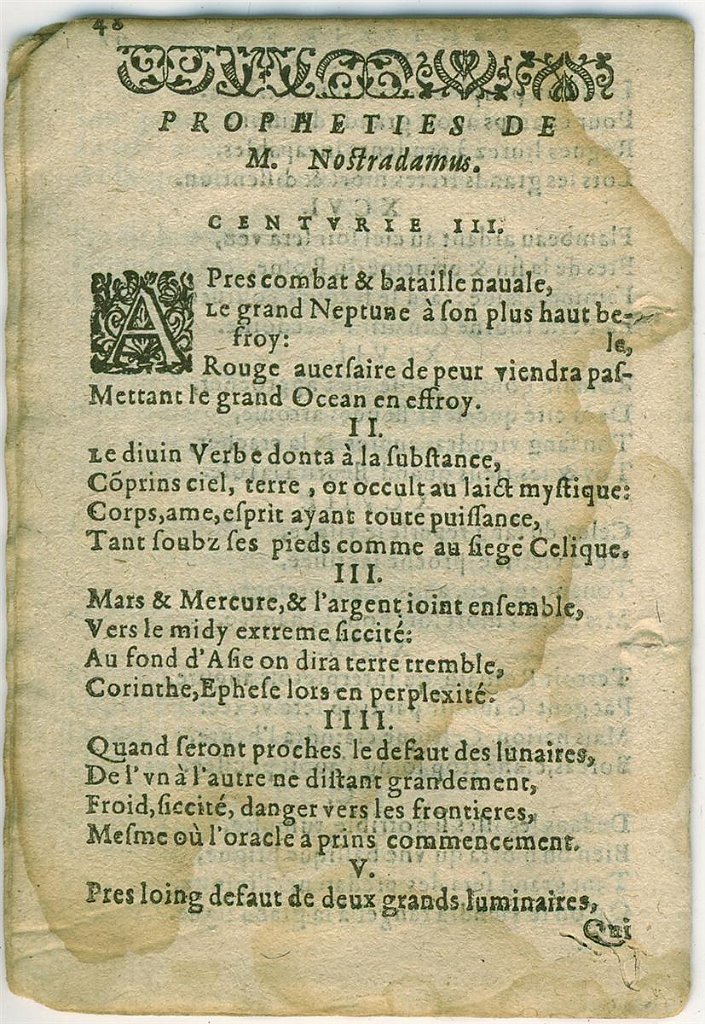 48
PROPHETIES DE
M. Noſtradamus.
CENTVRIE III.
APres combat & bataille nauale,
Le grand Neptune à ſon plus haut be-
froy:
le,
Rouge auerſaire de peur viendra paſ-
Mettant le grand Ocean en effroy.
II.
Le diuin Verbe donta à la ſubſtance,
Cõprins ciel, terre, or occult au laict myſtique:
Corps, ame, eſprit ayant toute puiſſance,
Tant ſoubz ſes pieds comme au ſiege Celique.
III.
Mars & Mercure, & l'argent ioint enſemble,
Vers le midy extreme ſiccité:
Au fond d'Aſie on dira terre tremble,
Corinthe, Epheſe lors en perplexité.
IIII.
Quand ſeront proches le defaut des lunaires,
De l'vn à l'autre ne diſtant grandement,
Froid, ſiccité, danger vers les frontieres,
Meſme où l'oracle a prins commencement.
V.
Pres loing defaut de deux grands luminaires,
Qui